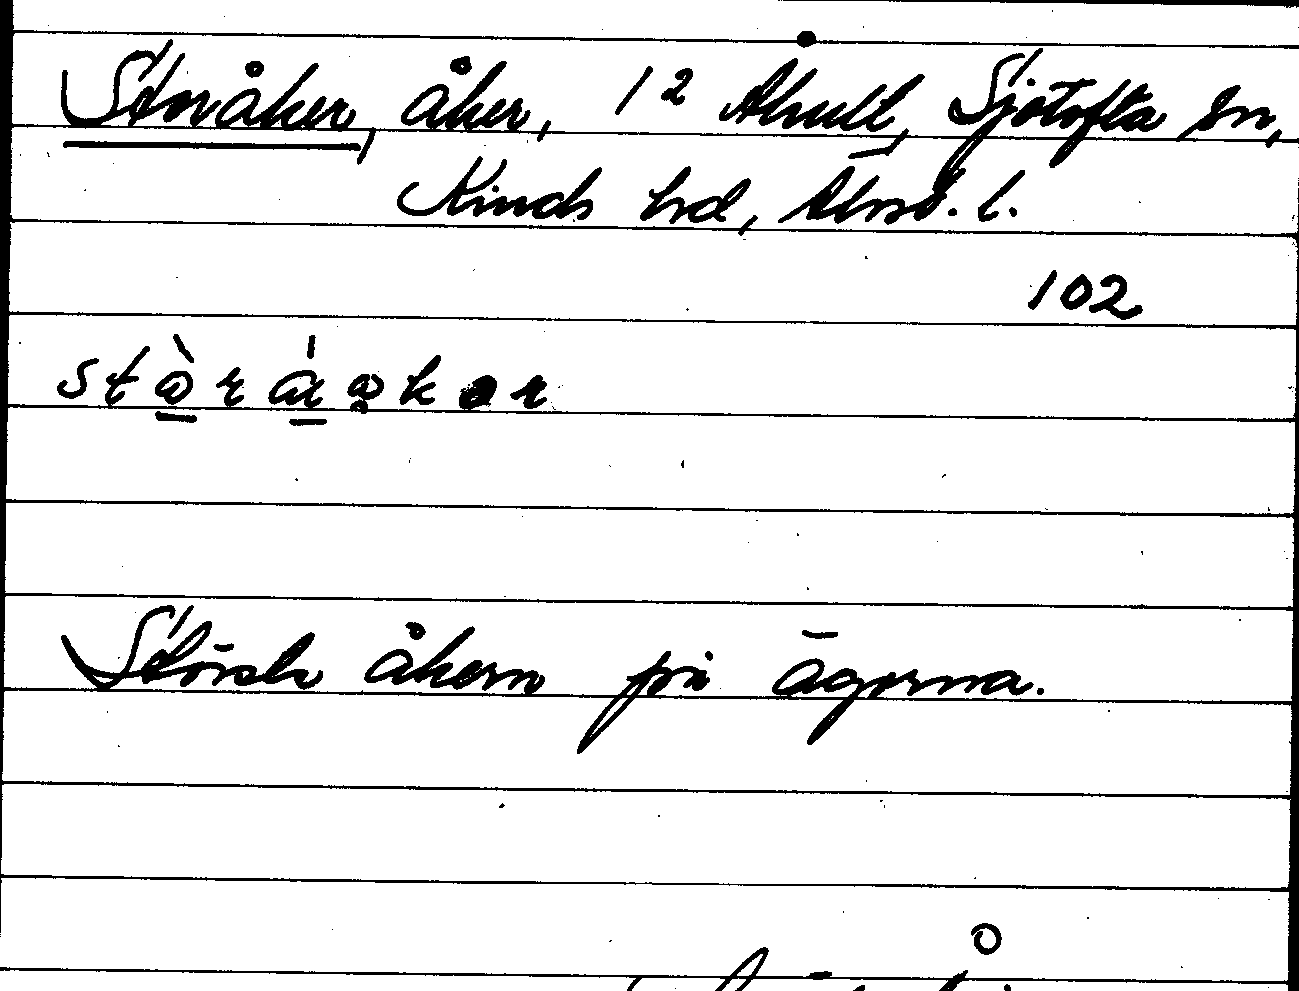 Storåker, åker, 1² Åhult, Sjötofta sn,
Kinds hd, Älvsb. l.
102
Största åkern på ägorna.